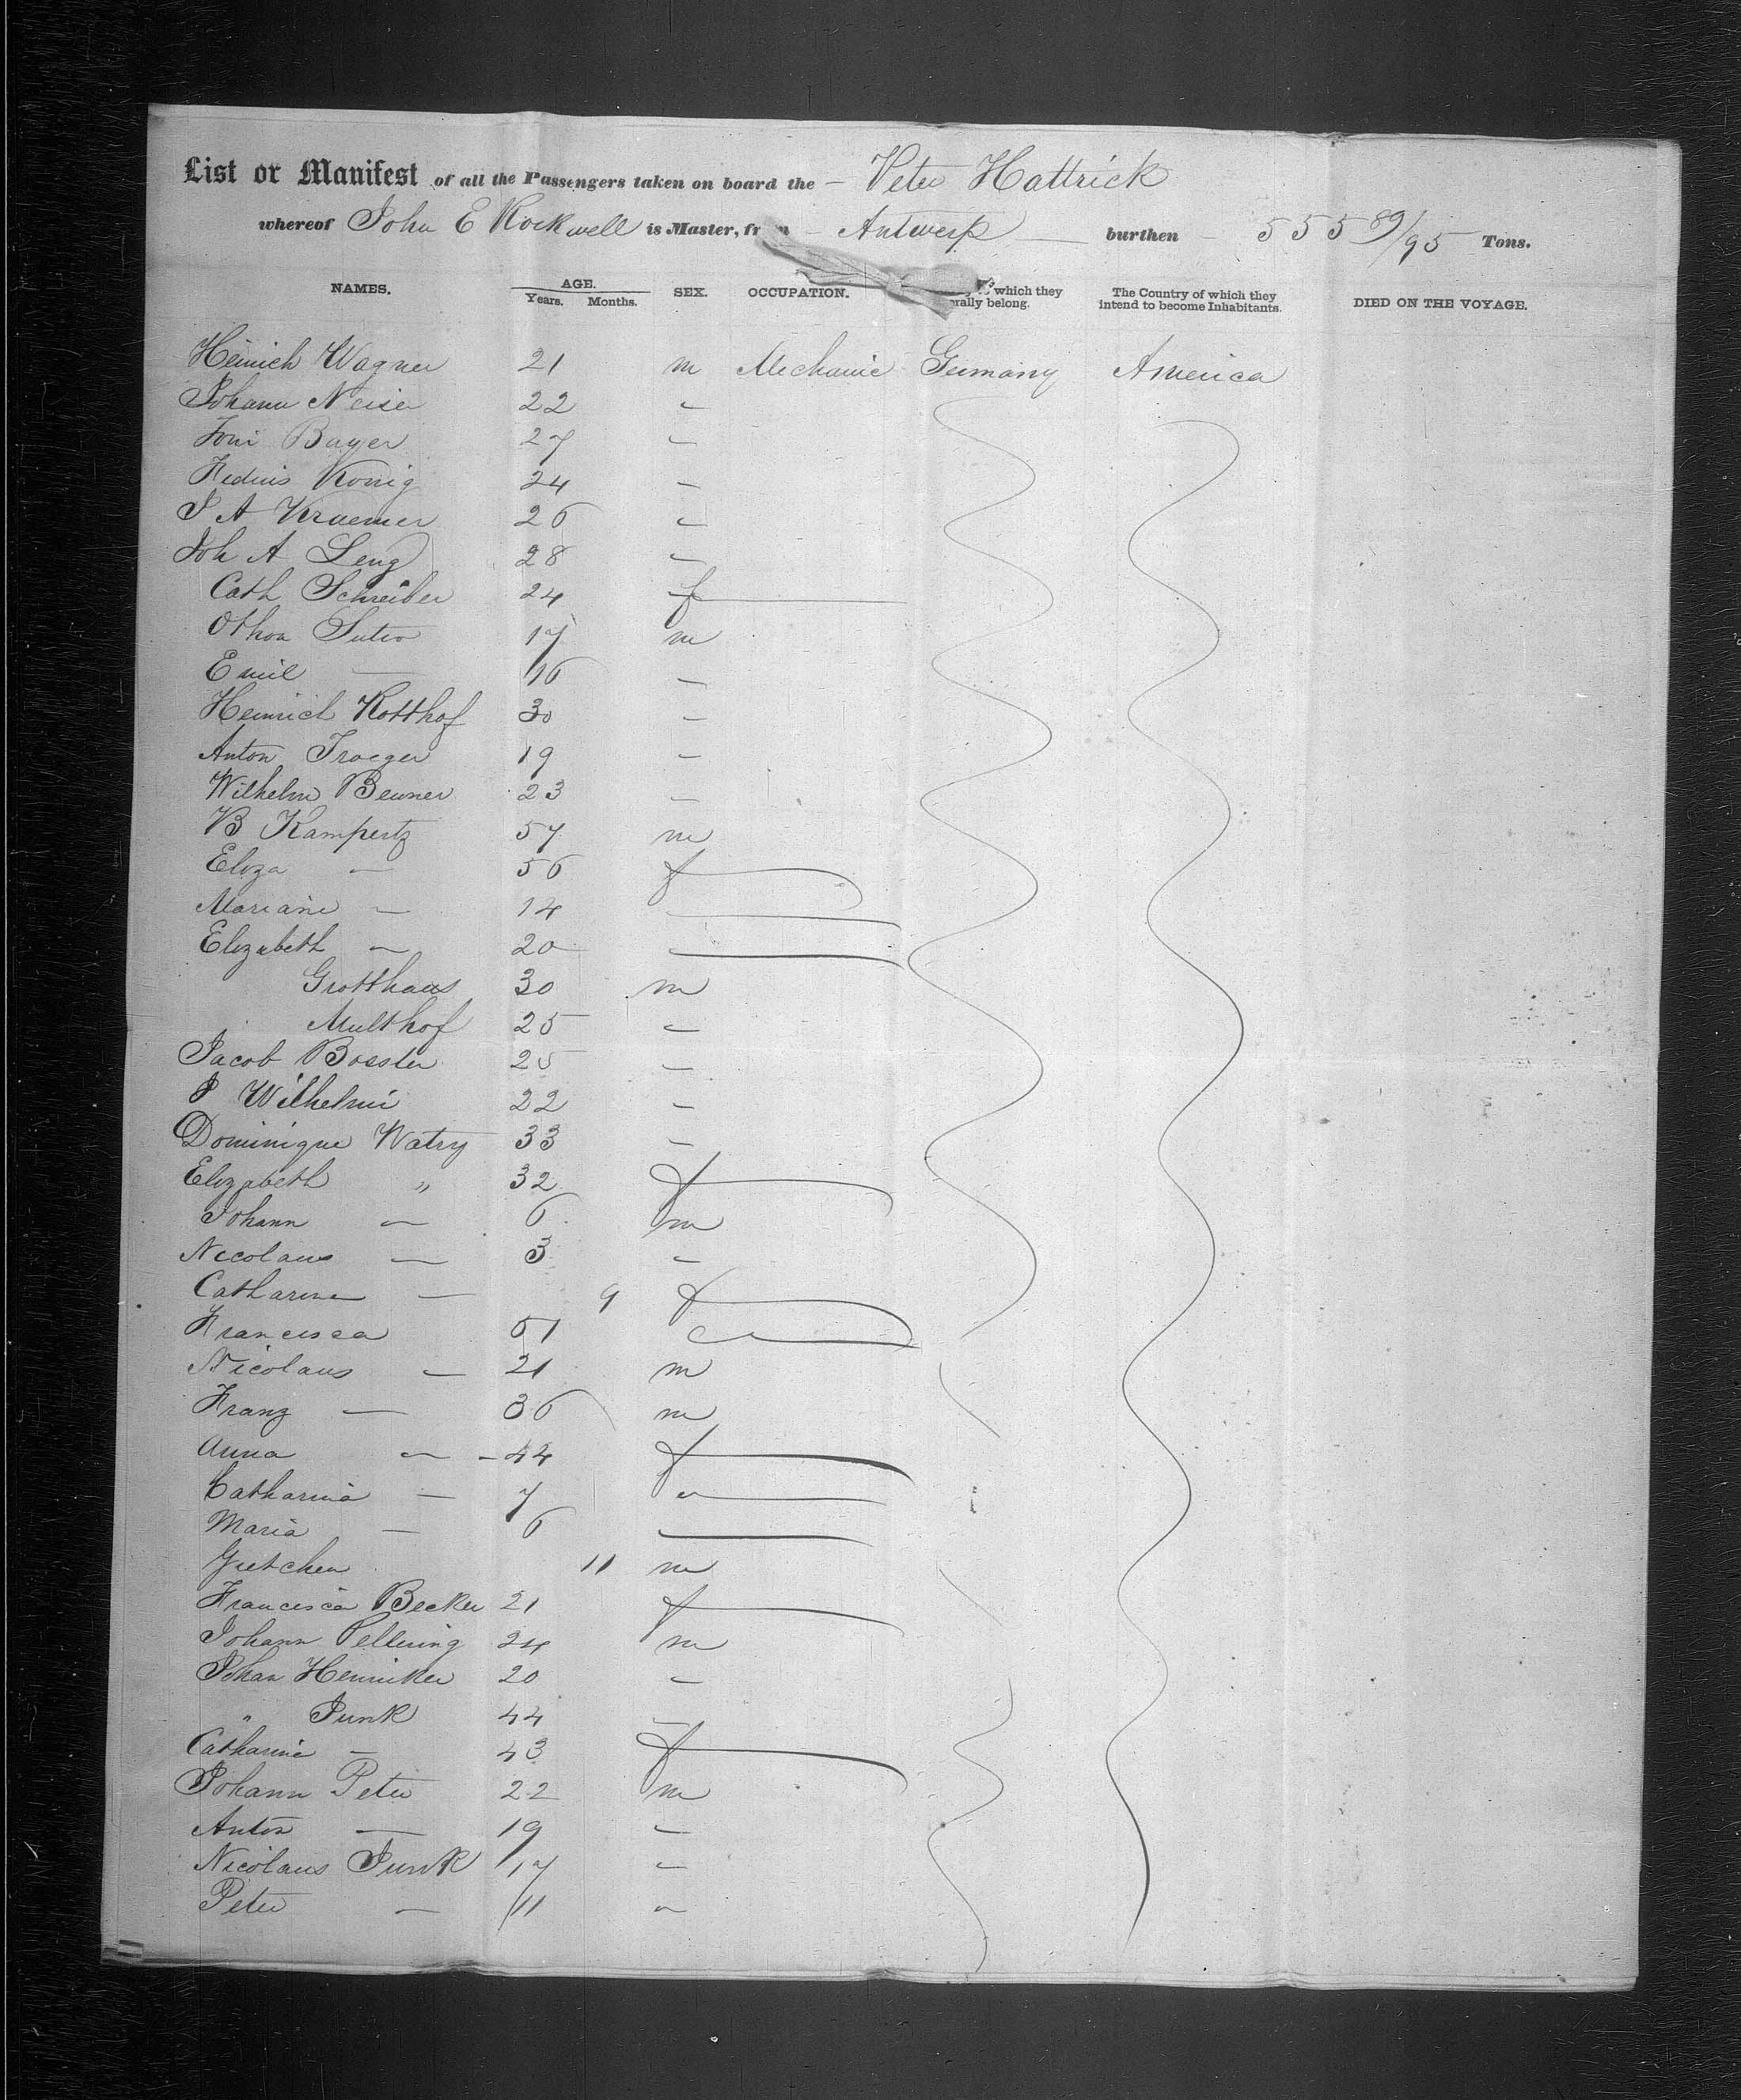 List or Manifest of all the Passengers taken on board the – Peter Hattrick
whereof John E Rockwell is Master, from – Antwerp — burthen – 555 89/95 Tons.
NAMES. AGE. Years. Months. SEX. OCCUPATION. which they erally belong. The Country of which they intend to become Inhabitants. DIED ON THE VOYAGE.
Heinrich Wagner 21 m Mechanic Germany America
Johann Neiser 22 "
Bayer 27 "
König 24 "
J A Kraemer 26 "
Joh A Leng 28 "
Cath Schreiber 24 f
Othon Sutro 17 m
Emil — 16 "
Heinrich Kotthof 30 "
Anton Traeger 19 "
Wilhelm Bewner 23 "
B Kampertz 57 m
Eliza — 56 f
Mariane — 14
Elizabeth — 20
Grotthaus 30 m
Multhof 25 "
Jacob Bossler 25 "
P Wilhelmi 22 "
Dominique Watry 33 "
Elizabeth " 32 f
Johann — 6 m
Nicolaus — 3 "
Catharine — 9 f
Francisca 61 "
Nicolaus — 21 m
Franz — 36 m
Anna — 44 f
Catharina — 7 "
Maria — 6
Gretchen 11 m
Francisca Becker 21 f
Johann Pellering 24 m
Johan Henniker 20 "
" Junk 44 "
Catharine — 43 f
Johann Peter 22 m
Anton — 19 "
Nicolaus Junk 17 "
Peter — 11 "